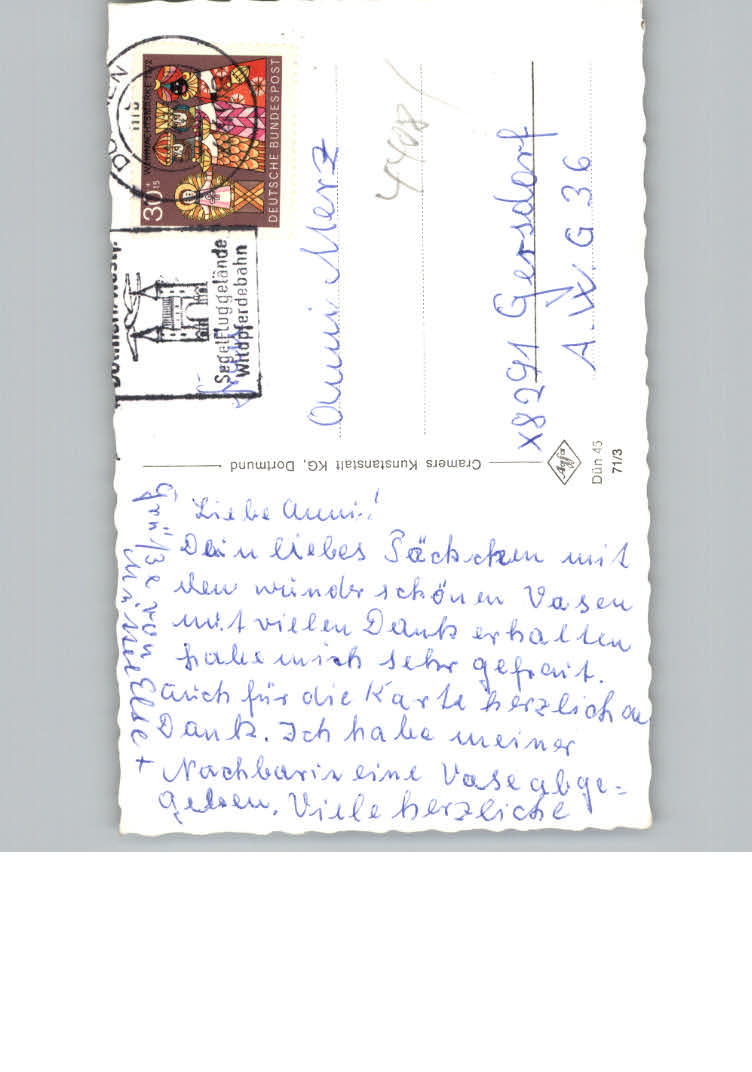 Liebe Anni!
Dein liebes Päckchen mit
den wunderschönen Vasen
mit vielen Dank erhalten
habe mich sehr gefreut.
auch für die Karte herzlichen
Dank. Ich habe meiner
Nachbarin eine Vase abge=
geben. Viele herzliche
Grüße von
Else +
Cramers Kunstanstalt KG, Dortmund
Agfa
Dün 45
71/3
Anni Merz
X8291 Gersdorf
A.W.G 36
4408/
30+15
WEIHNACHTSMARKE 1972
DEUTSCHE BUNDESPOST
Segelfluggelände
Wildpferdebahn